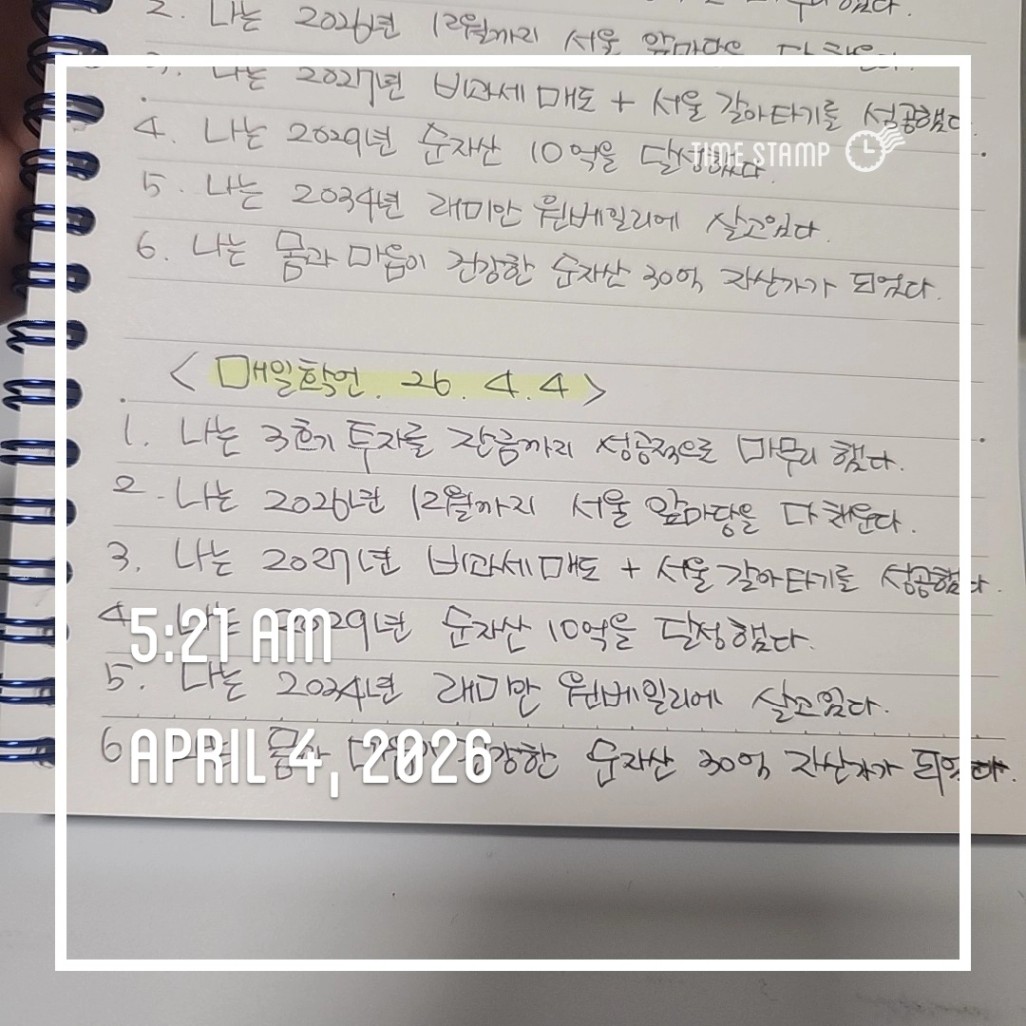 2. 나는 2026년 12월까지 서울 앞마당을 다 채운다.
3. 나는 2027년 비과세 매도 + 서울 갈아타기를 성공했다.
4. 나는 2029년 순자산 10억을 달성했다.
TIME STAMP
5. 나는 2034년 래미안 원베일리에 살고있다.
6. 나는 몸과 마음이 건강한 순자산 30억 자산가가 되었다.
<매일확언. 26. 4. 4>
1. 나는 3호기 투자를 잔금까지 성공적으로 마무리 했다.
2. 나는 2026년 12월까지 서울 앞마당을 다 채운다.
3. 나는 2027년 비과세 매도 + 서울 갈아타기를 성공했다.
4. 나는 2029년 순자산 10억을 달성했다.
5:21 AM
5. 나는 2034년 래미안 원베일리에 살고있다.
6. 나는 몸과 마음이 건강한 순자산 30억 자산가가 되었다.
APRIL 4, 2026